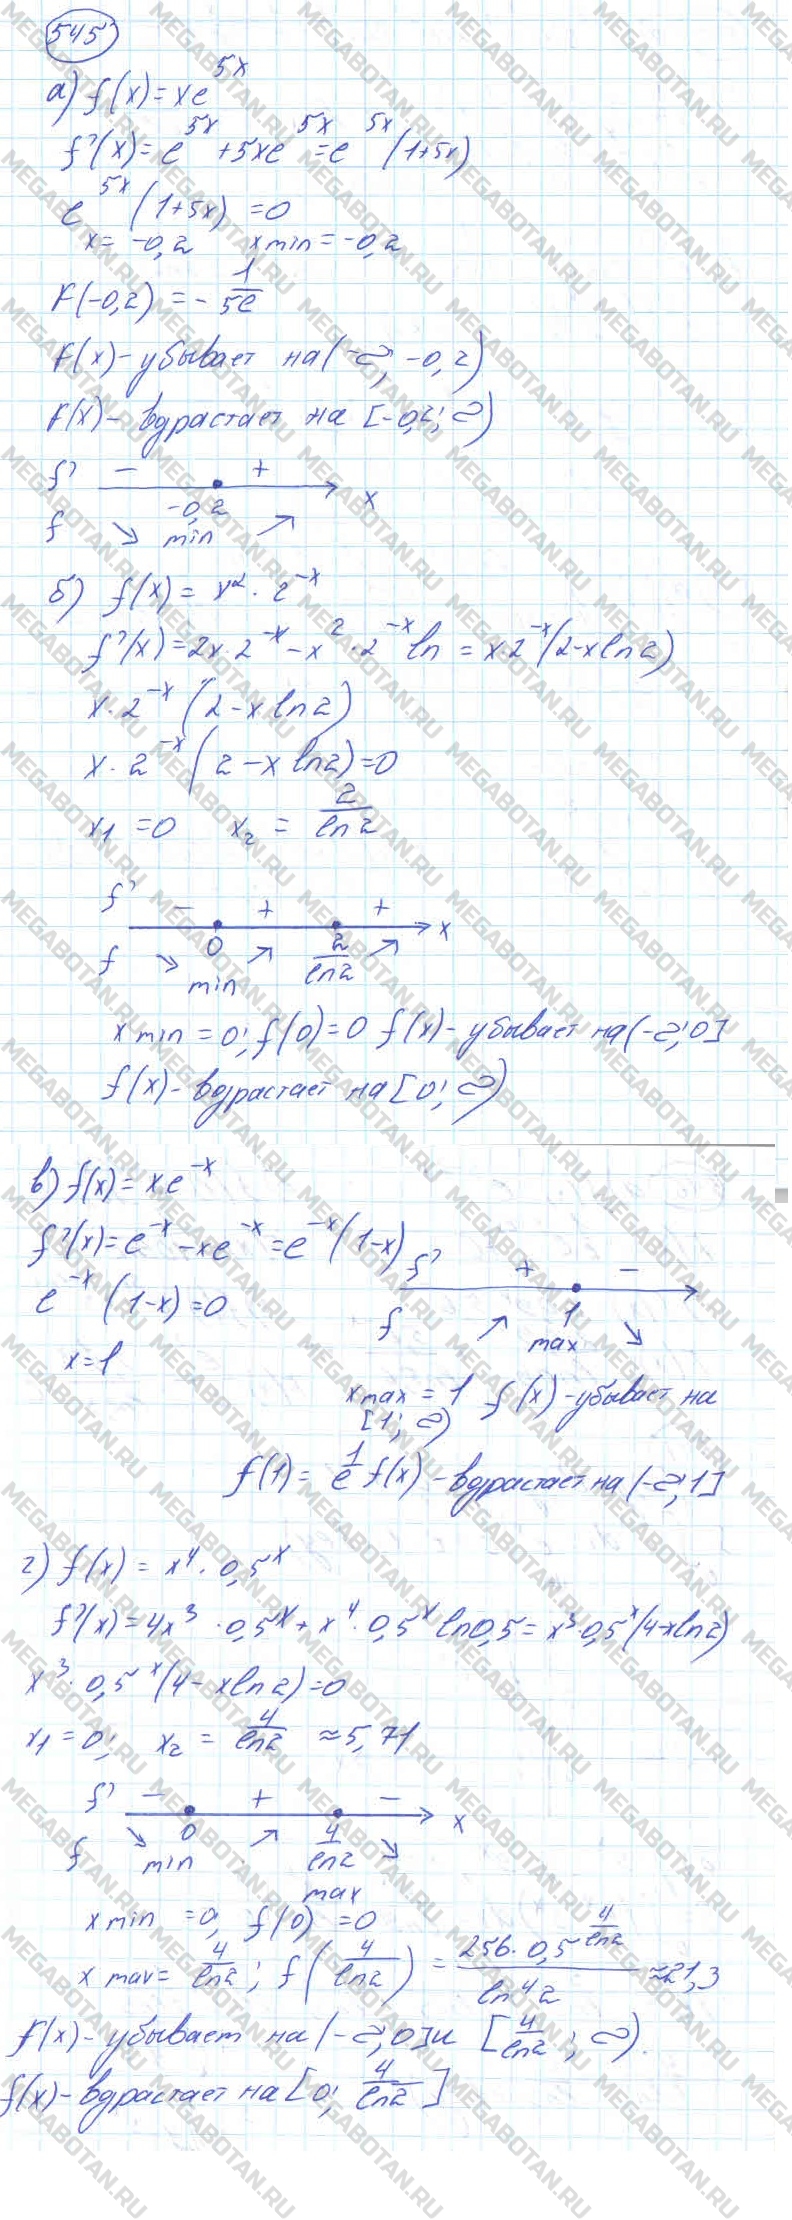 545
а) f(x) = xe^5x
f'(x) = e^5x + 5xe^5x = e^5x (1+5x)
e^5x (1+5x) = 0
x = -0,2 xmin = -0,2
F(-0,2) = - 1/5e
F(x) - убывает на (-∞; -0,2)
F(x) - вдрастает на [-0,2; ∞)
f' - + 
-0,2 x
f ↘ min ↗
б) f(x) = x² · 2^-x
f'(x) = 2x · 2^-x - x² · 2^-x ln = x 2^-x (2-x ln 2)
x · 2^-x (2 - x ln 2)
x · 2^-x (2 - x ln 2) = 0
x1 = 0 x2 = 2/ln 2
f' - + +
0 2/ln2 x
f ↘ min ↗ ↗
x min = 0; f(0) = 0 f(x) - убывает на (-∞; 0]
f(x) - вдрастает на [0; ∞)
в) f(x) = xe^-x
f'(x) = e^-x - xe^-x = e^-x (1-x)
e^-x (1-x) = 0
x = 1
f' + -
1
f ↗ max ↘
xmax = 1 f(x) - убывает на
[1; ∞)
f(1) = 1/e f(x) - вдрастает на (-∞; 1]
г) f(x) = x⁴ · 0,5^x
f'(x) = 4x³ · 0,5^x + x⁴ · 0,5^x ln0,5 = x³ 0,5^x (4-xln2)
x³ · 0,5^x (4 - xln2) = 0
x1 = 0; x2 = 4/ln2 ≈ 5,71
f' - + -
0 4/ln2 x
f ↘ min ↗ max ↘
x min = 0, f(0) = 0
x max = 4/ln2 ; f(4/ln2) = 256 · 0,5^(4/ln2) / ln⁴2 ≈ 21,3
f(x) - убывает на (-∞; 0] и [4/ln2 ; ∞).
f(x) - вдрастает на [0; 4/ln2]
MEGABOTAN.RU